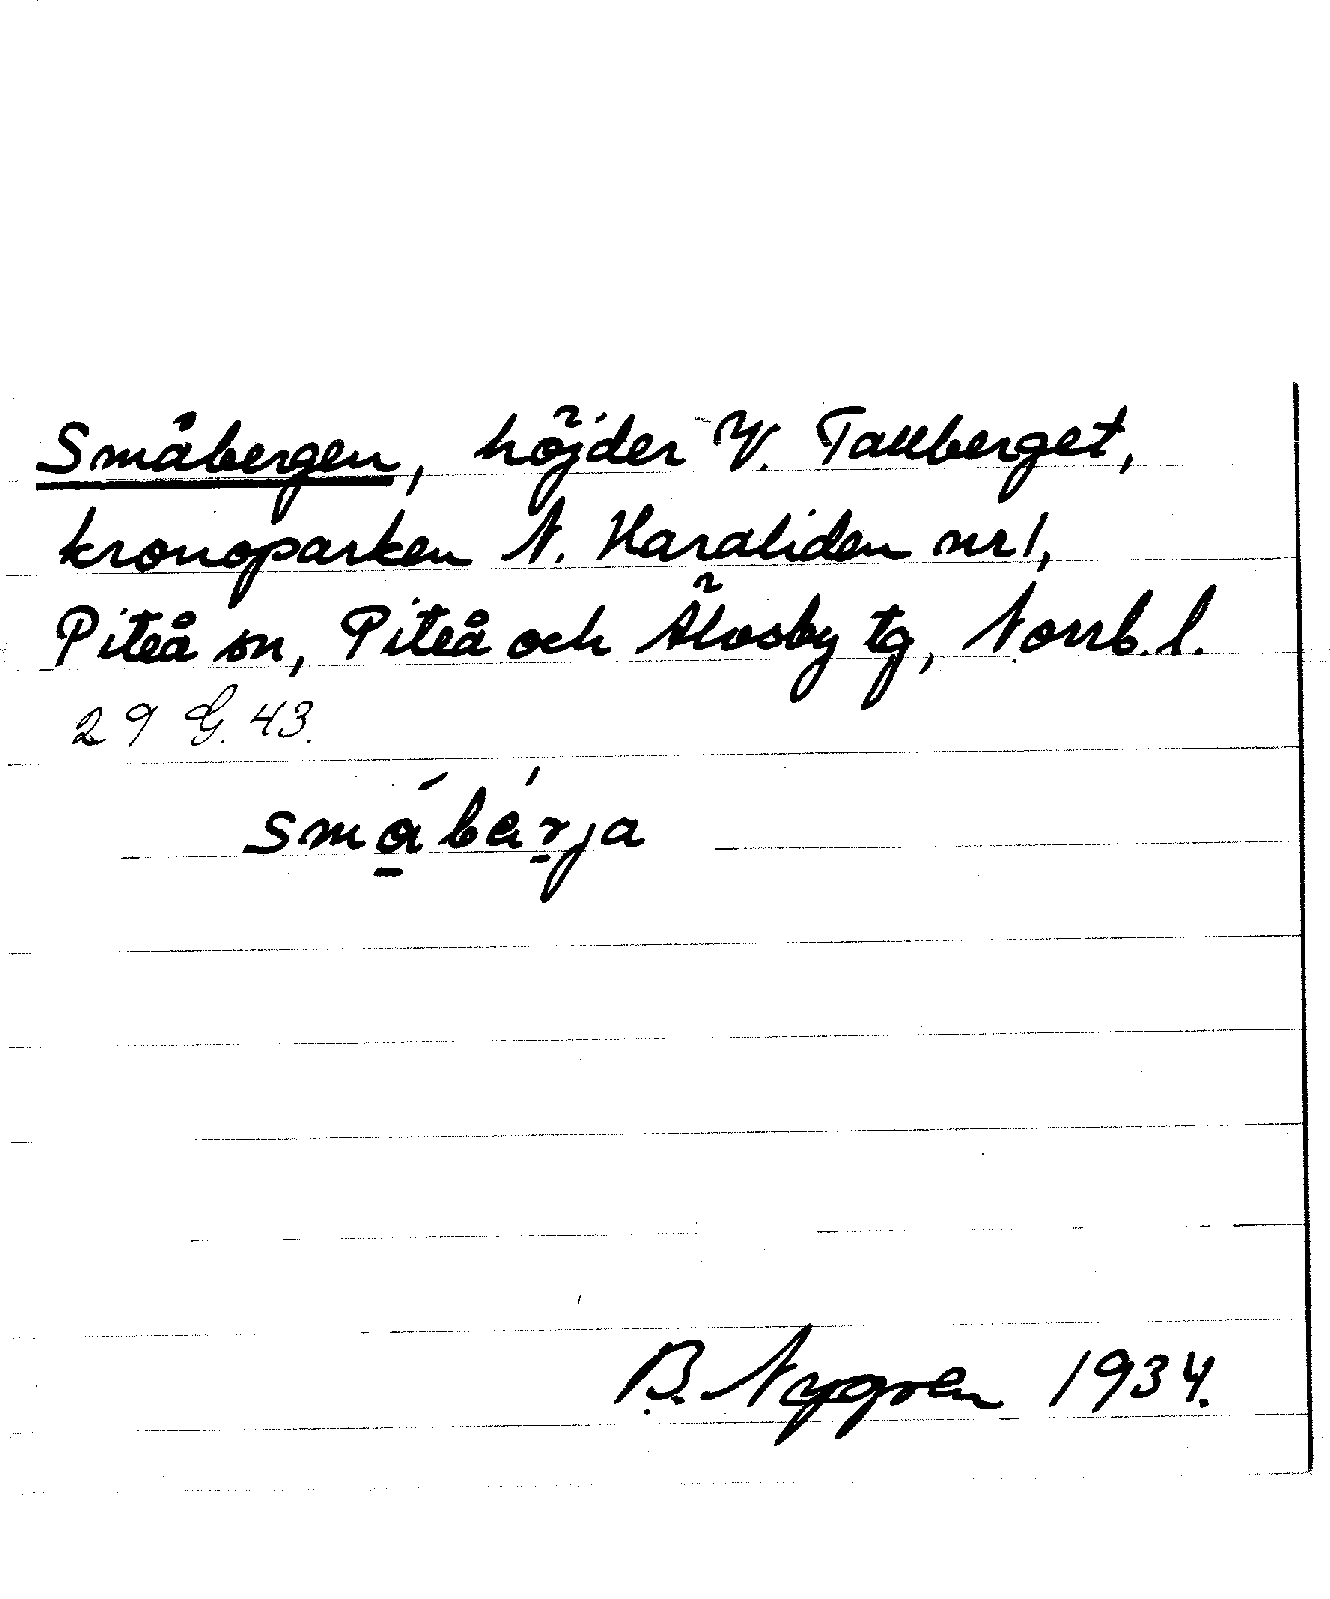 Småbergen, höjder V. Tallberget,
kronoparken N. Haraliden nr 1,
Piteå sn, Piteå och Älvsby tg, Norrb. l.
29 G. 43.
småbärja
B. Nygren 1934.